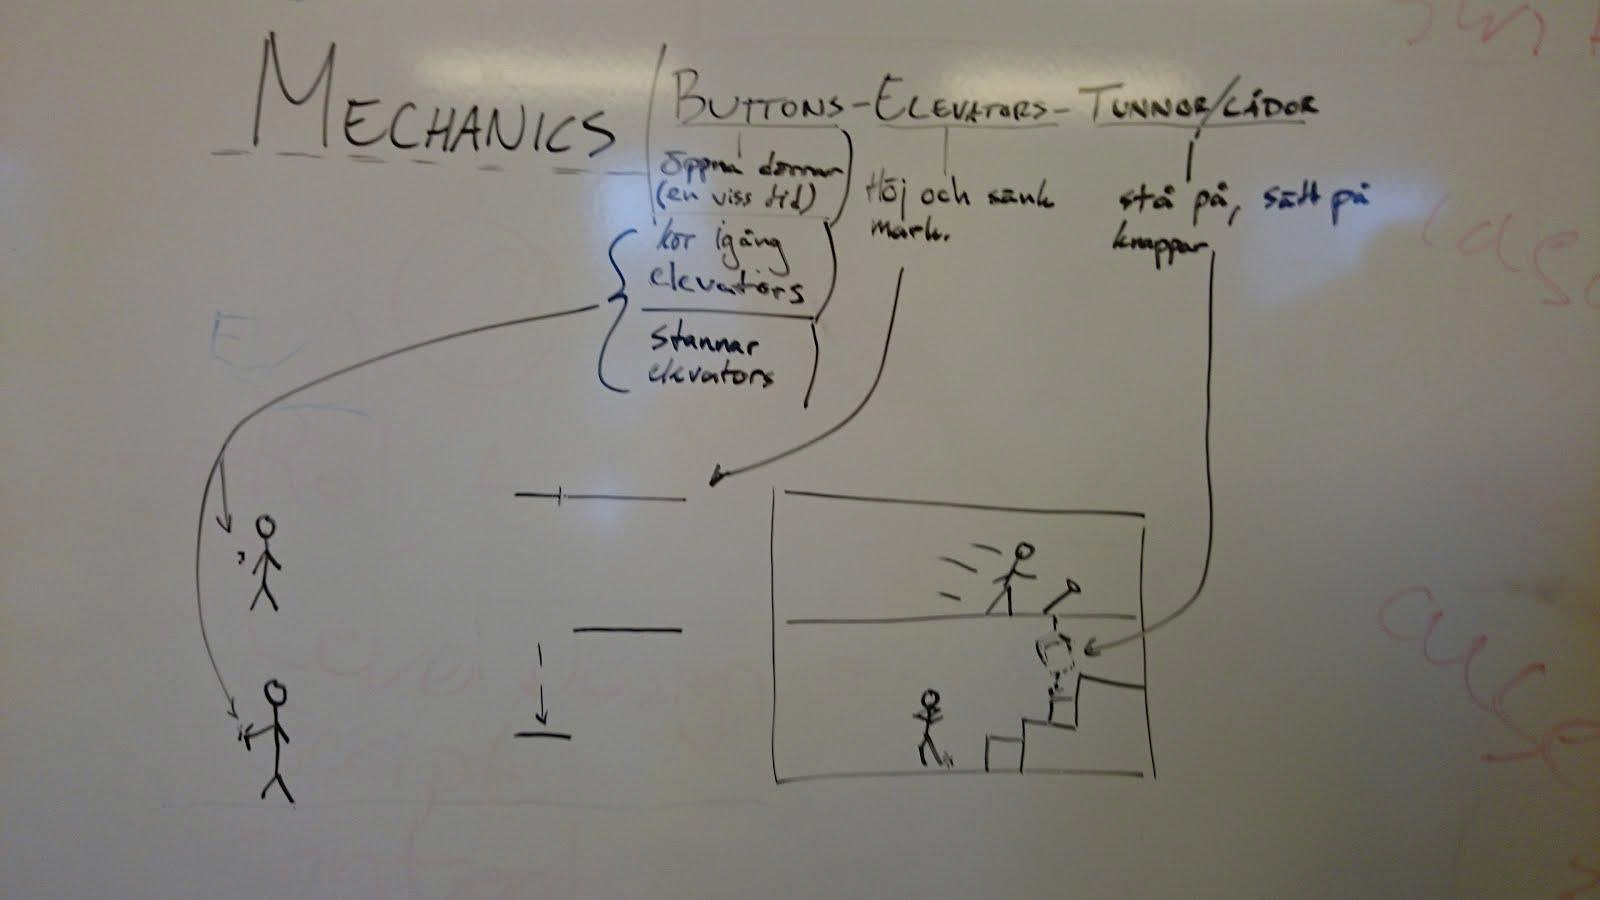 MECHANICS
BUTTONS - ELEVATORS - TUNNOR/LÅDOR
öppna dörrar
(en viss tid)
kör igång
elevators
stannar
elevators
Höj och sänk
mark.
stå på, sätt på
knappar